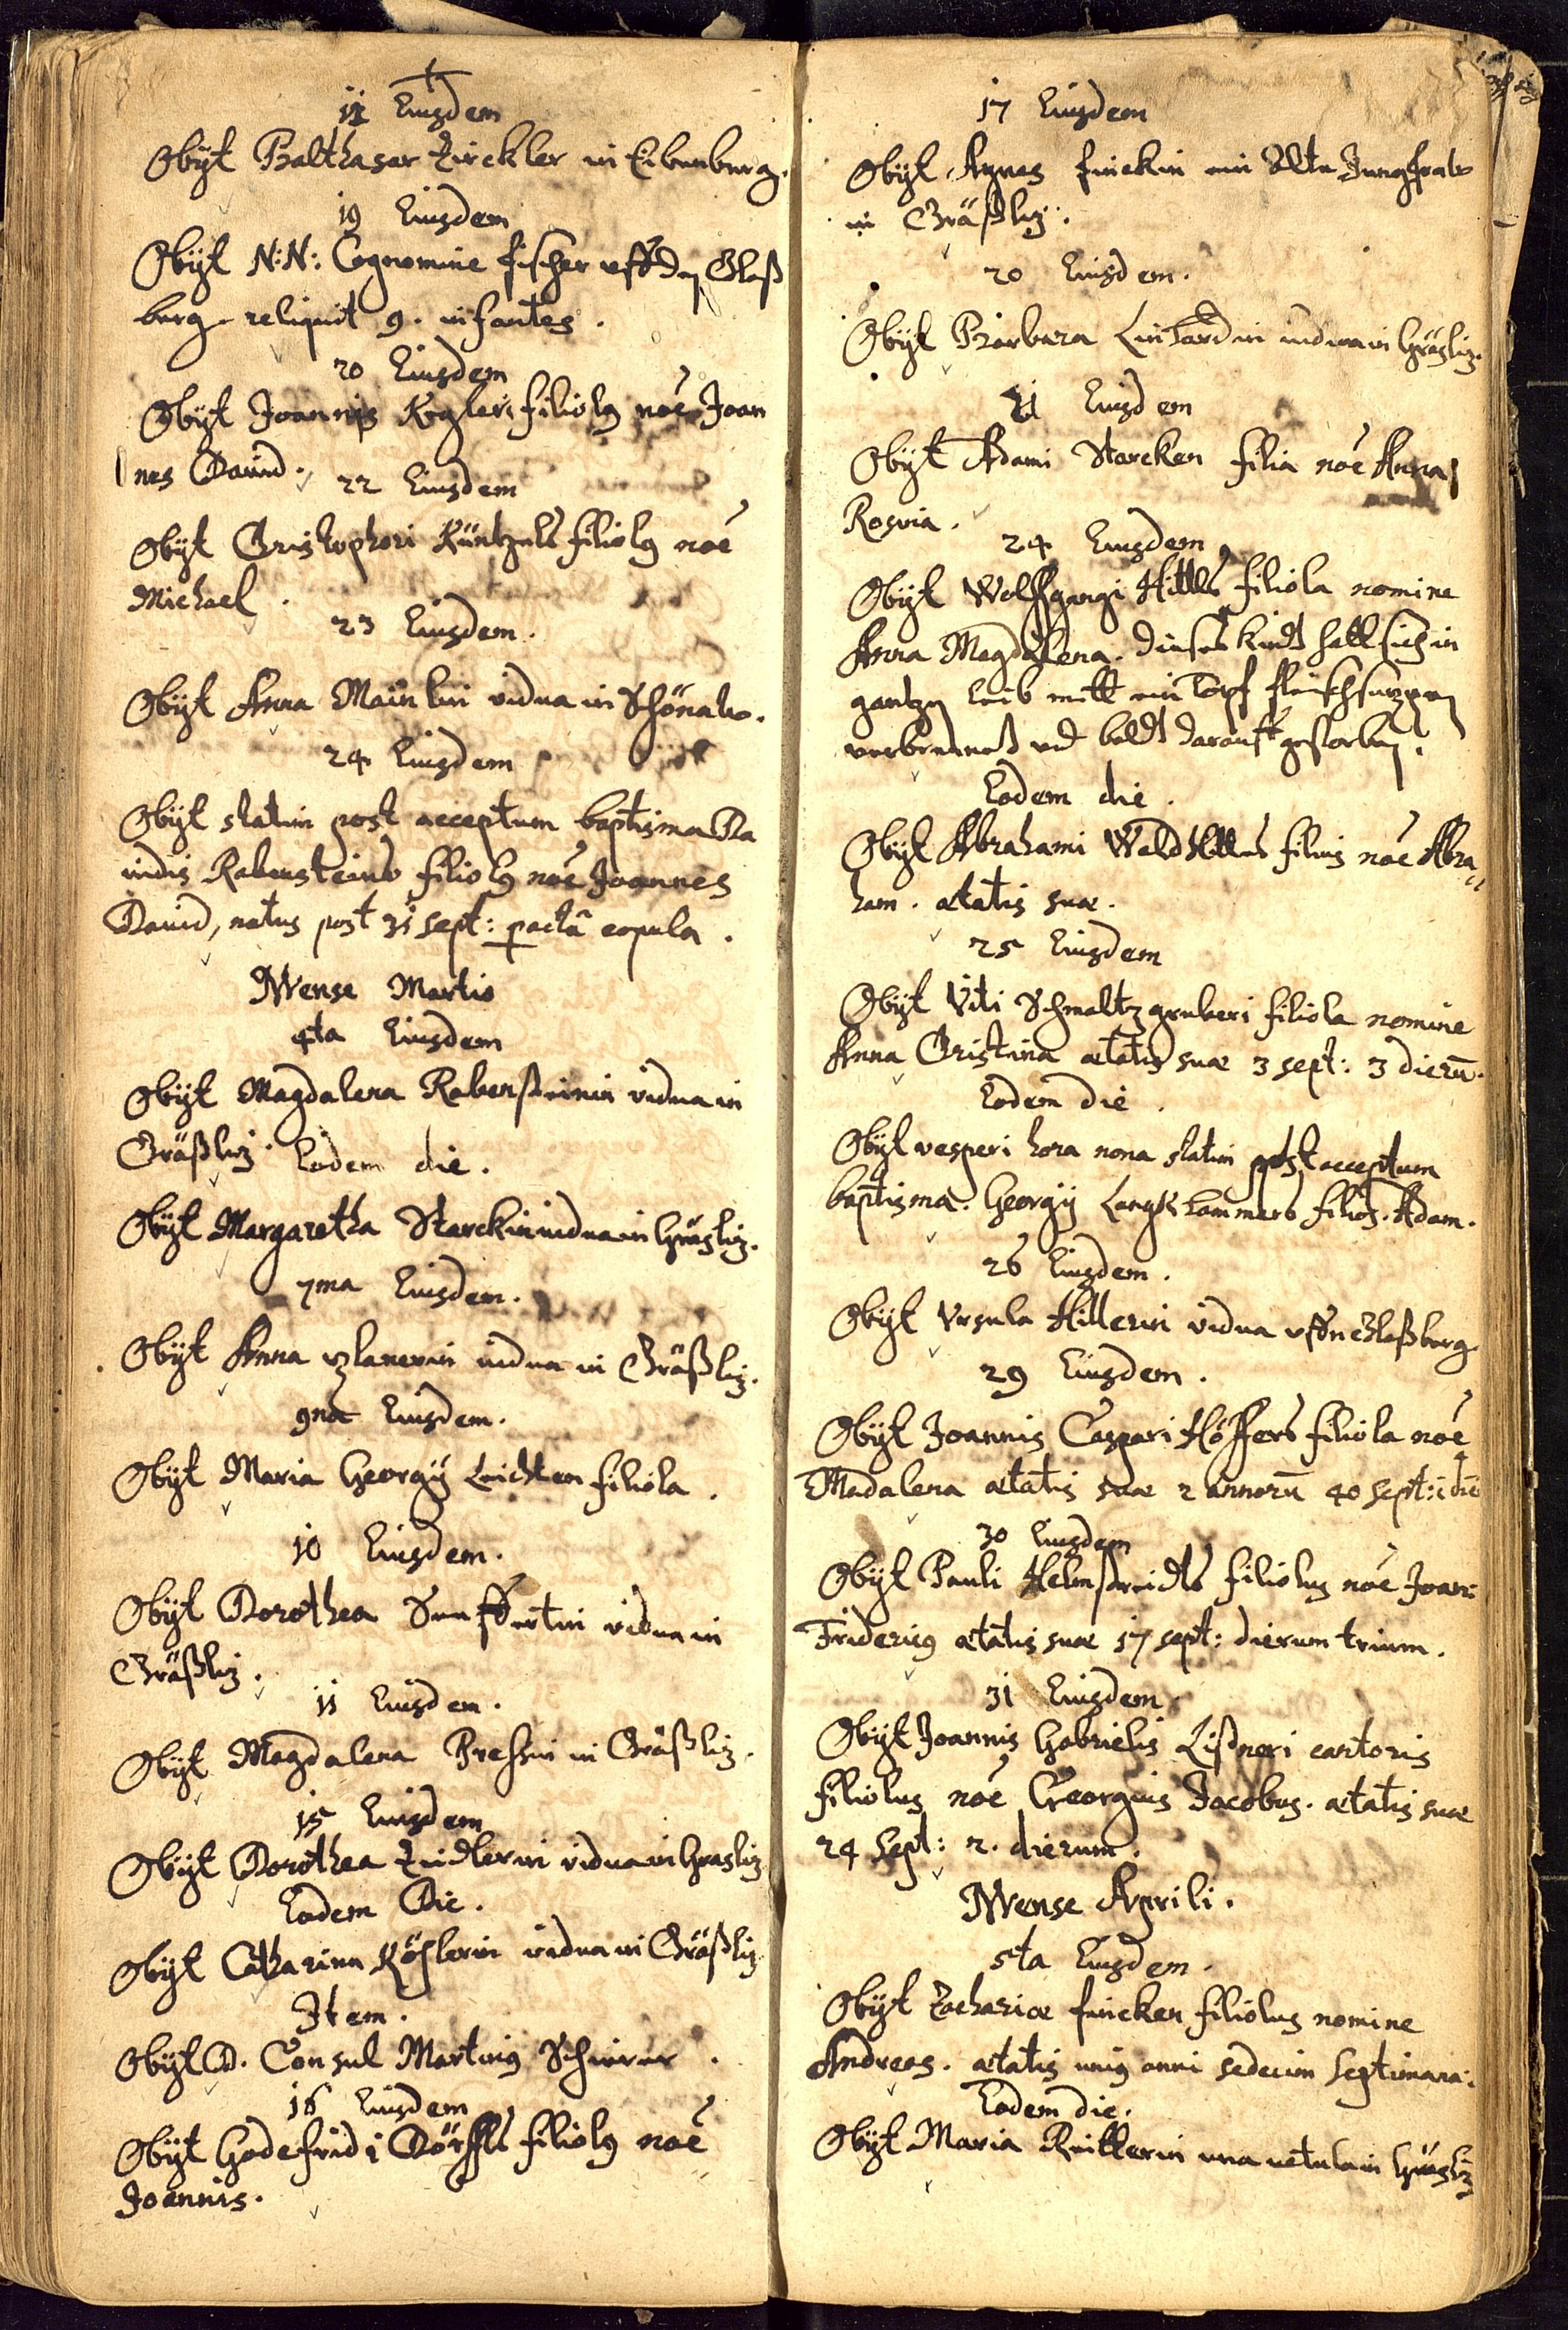 11 Eiusdem
Obÿt Balthasar Zirckler in Eibenberg.
19 Eiusdem
Obÿt N:N: Cognomine Fischer vff dē Glaß
berg reliquit 9. infantes.
20 Eiusdem
Obÿt Joannis Koglers filiolꝰ noē Joan
nes David.
22 Eiusdem
Obÿt Cristophori Küntzels filiolꝰ noē
Michael.
23 Eiusdem.
Obÿt Anna vidua in Schönaw.
24 Eiusdem
Obÿt statim post acceptum baptisma Da
uidis Rabensteins filiolꝰ noē Joannes
David, natus post 31 sept: copula.
Mense Martio
4ta Eiusdem
Obÿt Magdalena Rabensteinin vidua in
Gräßliz.
Eodem die.
Obÿt Margaretha Starckin vidua in Gräsliz.
7ma Eiusdem.
Obÿt Anna vidua in Gräßliz.
9na Eiusdem.
Obÿt Maria Georgÿ filiola.
10 Eiusdem.
Obÿt Dorothea vidua in
Gräßliz.
11 Eiusdem.
Obÿt Magdalena in Gräßliz.
15 Eiusdem
Obÿt Dorothea Zeidlerin vidua in Grasliz
Eodem Die.
Obÿt Catharina Röslerin vidua in Gräßliz
Item.
Obÿt D. Consul Martinꝰ
16 Eiusdem
Obÿt Godefridi Dörffls filiolꝰ noē
Joannis.
17 Eiusdem
Obÿt Agnes Finckin ein Alte Jungfraw
in Gräßliz.
20 Eiusdem.
Obÿt Barbara Linhardin vidua in Gräsliz.
21 Eiusdem
Obÿt Adami Starcken filia noē Anna
Rosina.
24 Eiusdem
Obÿt Wolffgangi Hillers filiola nomine
Anna Magdalena. Dieses kindt hatt sich in
gantzen leib mitt ein Topf fleischsuppen
verbrennet vnd baldt darauff gestorben.
Eodem die.
Obÿt Abrahami filius noē Abra
ham. ætatis suæ.
25 Eiusdem
Obÿt Viti Schmaltzgruberi filiola nomine
Anna Cristina ætatis suæ 3 sept: 3 dierū.
Eodem die.
Obÿt vesperi hora nona statim post acceptum
baptisma. Georgÿ Langhammers filiꝰ. Adam.
26 Eiusdem.
Obÿt Vrsula Hillerin vidua vffn Glaßberg
29 Eiusdem.
Obÿt Joannis Caspari Höffers filiola noē
Madalena ætatis suæ 2 annorū 40 sept: 1 die
30 Eiusdem
Obÿt Pauli filiolus noē Joan:
Fridericꝰ ætatis suæ 17 sept: dierum trium.
31 Eiusdem
Obÿt Joannis Gabrielis Lißneri cantoris
filiolus noē Georgius Jacobus. ætatis suæ
24 Sept: 2. dierum.
Mense Aprili.
5ta Eiusdem.
Obÿt Zachariæ Fincken filiolus nomine
Andreas. ætatis uniꝰ anni sedecim Septimana:
Eodem die.
Obÿt Maria una vetula in Gräsliz